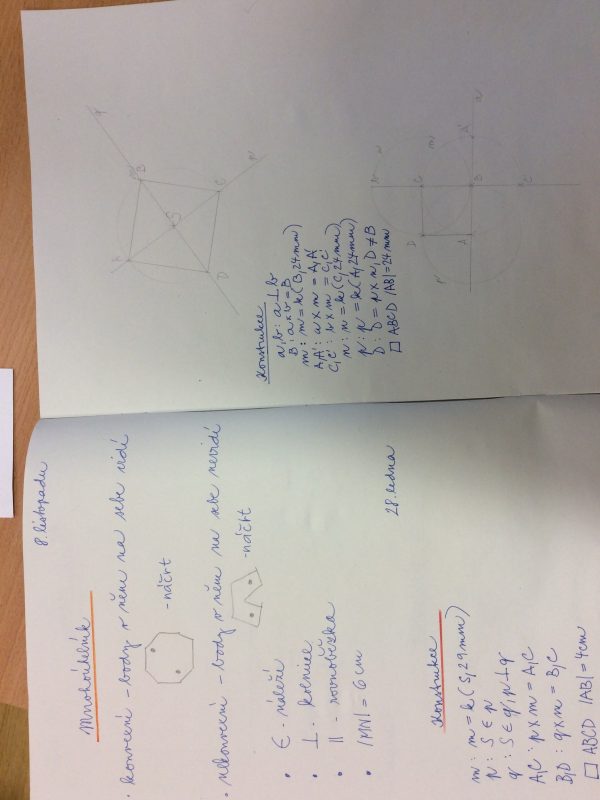 8. listopadu
Mnohoúhelník
• konvexní - body v něm na sebe vidí
- náčrt
• nekonvexní - body v něm na sebe nevidí
- náčrt
• ∈ - náleží
• ⊥ - kolmice
• || - rovnoběžka
• |MN| = 6 cm
28. ledna
Konstrukce
m : m = k(S, 29 mm)
p : S ∈ p
q : S ∈ q; p ⊥ q
A,C : p x m = A,C
B,D : q x m = B,C
□ ABCD |AB| = 4cm
q
B
A
S
C
D
p
Konstrukce
a, b : a ⊥ b
B : a x b = B
m : m = k(B, 24 mm)
A,A' : a x m = A,A'
C,C' : b x m = C,C'
n : n = k(C, 24 mm)
p : p = k(A, 24 mm)
D : D = p x n, D ≠ B
□ ABCD |AB| = 24 mm
b
n
m
a
D
C
A
B
A'
C'
p